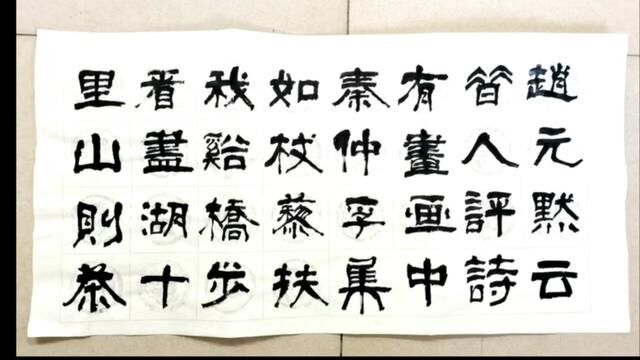 趙元默云
昔人評詩
有畫画中
秦仲孚集
如杖藜扶
我谿橋步
看盡湖十
里山則